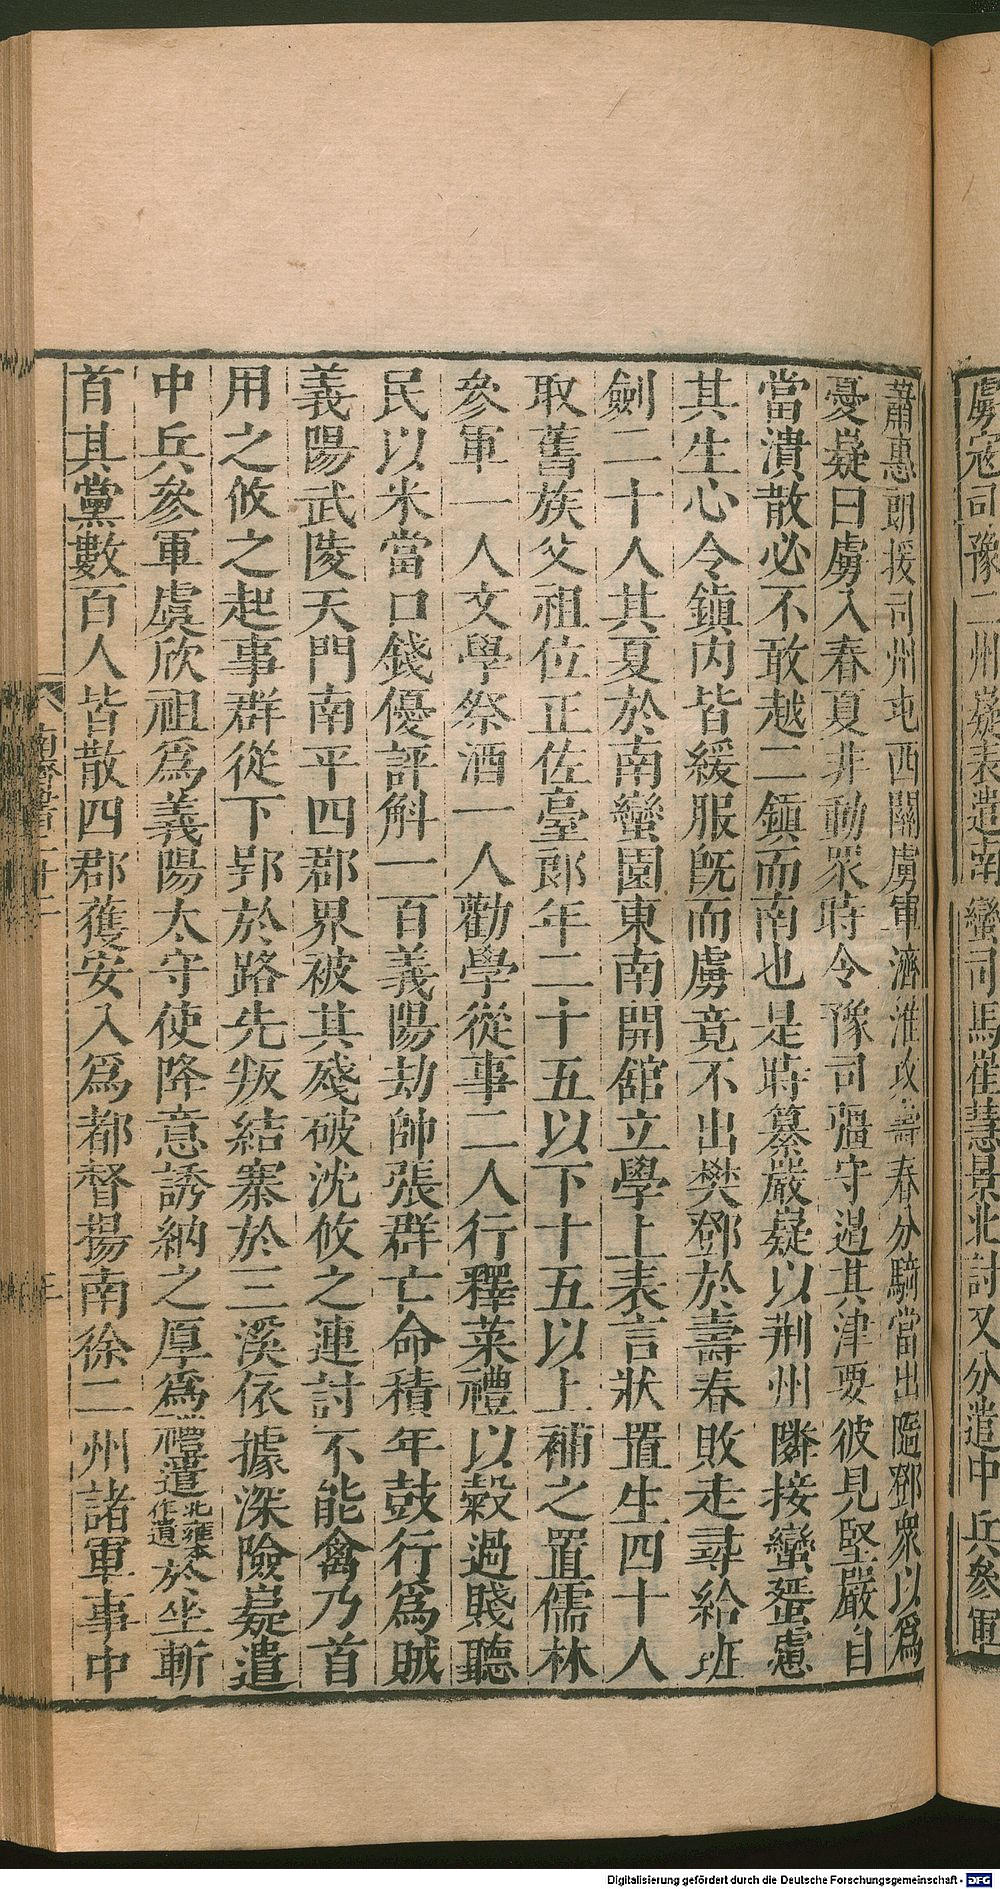 虜寇司豫二州嶷表遣南蠻司馬崔慧景北討又分遣中兵參軍
蕭惠朗援司州屯西關虜軍濟淮攻壽春分騎當出隨鄧衆以爲
憂嶷曰虜入春夏非動衆時令豫司彊守遏其津要彼見堅嚴自
當潰散必不敢越二鎮而南也是時纂嚴嶷以荆州隣接蠻蜑慮
其生心令鎮内皆緩服旣而虜竟不出樊鄧於壽春敗走尋給班
劍二十人其夏於南蠻園東南開舘立學上表言狀置生四十人
取舊族父祖位正佐臺郎年二十五以下十五以上補之置儒林
參軍一人文學祭酒一人勸學從事二人行釋菜禮以穀過賤聽
民以米當口錢優評斛一百義陽劫帥張群亡命積年鼓行爲賊
義陽武陵天門南平四郡界被其殘破沈攸之連討不能禽乃首
用之攸之起事群從下郢於路先叛結寨於三溪依據深險嶷遣
中兵參軍虞欣祖爲義陽太守使降意誘納之厚爲禮遣北雍本作遺於坐斬
首其黨數百人皆散四郡獲安入爲都督揚南徐二州諸軍事中
南齊書二十二
Digitalisierung gefördert durch die Deutsche Forschungsgemeinschaft - DFG